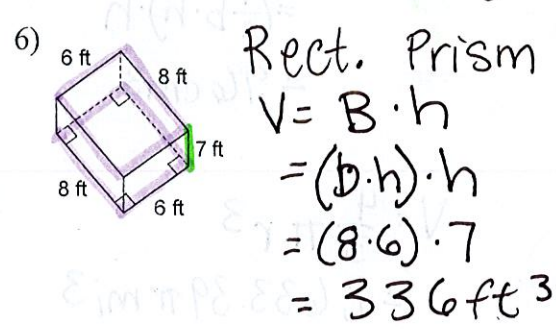 6)
6 ft
8 ft
7 ft
8 ft
6 ft
Rect. Prism
V= B·h
=(b·h)·h
=(8·6)·7
= 336ft³